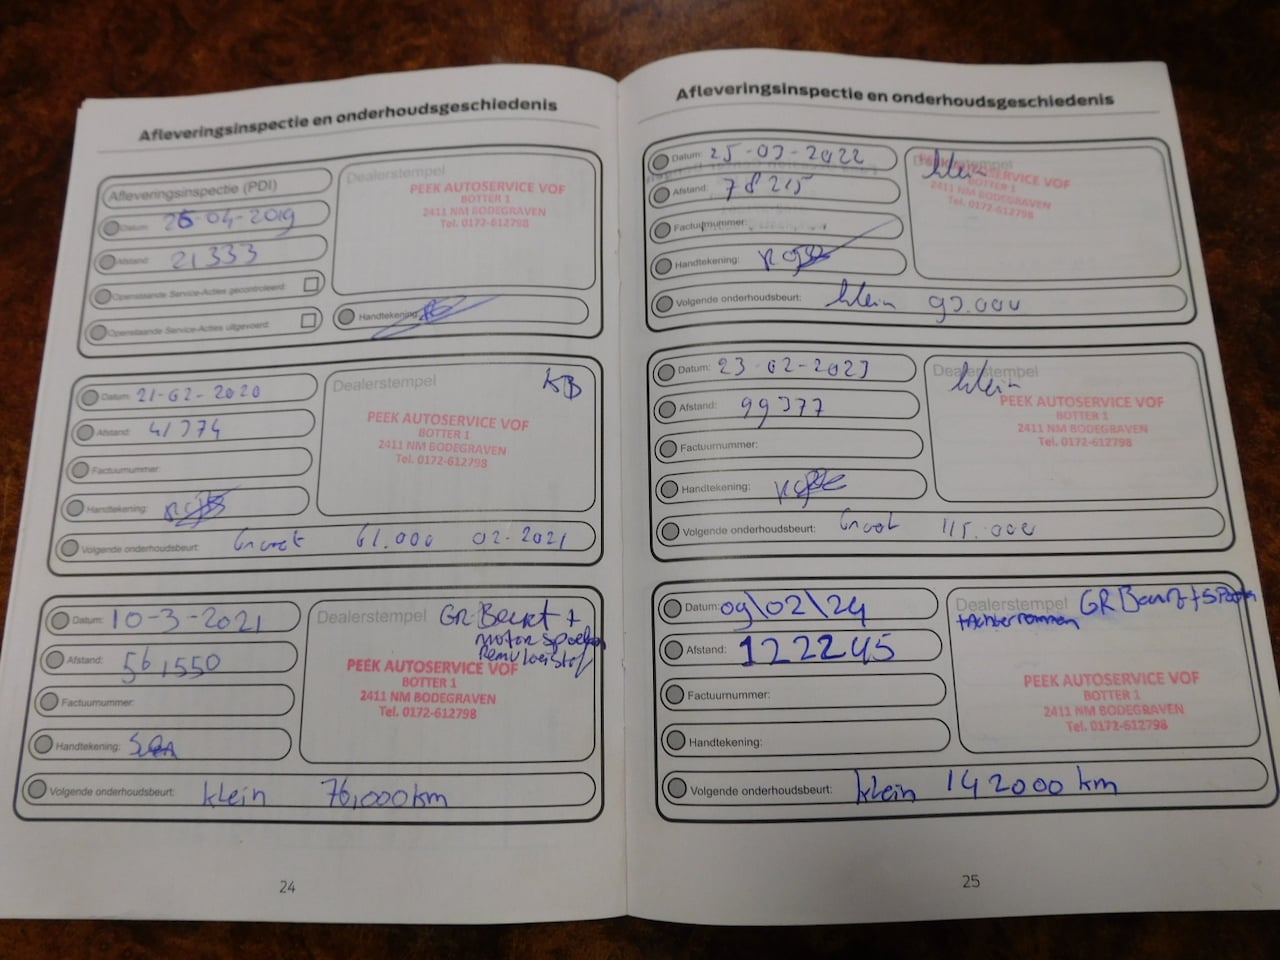 Afleveringsinspectie en onderhoudsgeschiedenis
Afleveringsinspectie (PDI)
Datum: 26-04-2019
Afstand: 21333
Openstaande Service-Acties gecontroleerd:
Openstaande Service-Acties uitgevoerd:
Dealerstempel
PEEK AUTOSERVICE VOF
BOTTER 1
2411 NM BODEGRAVEN
Tel. 0172-612798
Handtekening:
Datum: 21-02-2020
Afstand: 41374
Factuurnummer:
Handtekening:
Dealerstempel KB
PEEK AUTOSERVICE VOF
BOTTER 1
2411 NM BODEGRAVEN
Tel. 0172-612798
Volgende onderhoudsbeurt: Groot 61.000 02-2021
Datum: 10-3-2021
Afstand: 56,550
Factuurnummer:
Handtekening:
Dealerstempel GR-Beurt +
motor spoelen
Remvloeistof
PEEK AUTOSERVICE VOF
BOTTER 1
2411 NM BODEGRAVEN
Tel. 0172-612798
Volgende onderhoudsbeurt: klein 76,000 km
24
Afleveringsinspectie en onderhoudsgeschiedenis
Datum: 25-03-2022
Afstand: 78215
Factuurnummer:
Handtekening:
Dealerstempel klein
PEEK AUTOSERVICE VOF
BOTTER 1
2411 NM BODEGRAVEN
Tel. 0172-612798
Volgende onderhoudsbeurt: klein 93.000
Datum: 23-02-2023
Afstand: 99377
Factuurnummer:
Handtekening:
Dealerstempel klein
PEEK AUTOSERVICE VOF
BOTTER 1
2411 NM BODEGRAVEN
Tel. 0172-612798
Volgende onderhoudsbeurt: Groot 115.000
Datum: 09\02\24
Afstand: 122245
Factuurnummer:
Handtekening:
Dealerstempel GR Beurt + Spoelen
+Achterremmen
PEEK AUTOSERVICE VOF
BOTTER 1
2411 NM BODEGRAVEN
Tel. 0172-612798
Volgende onderhoudsbeurt: klein 142000 km
25